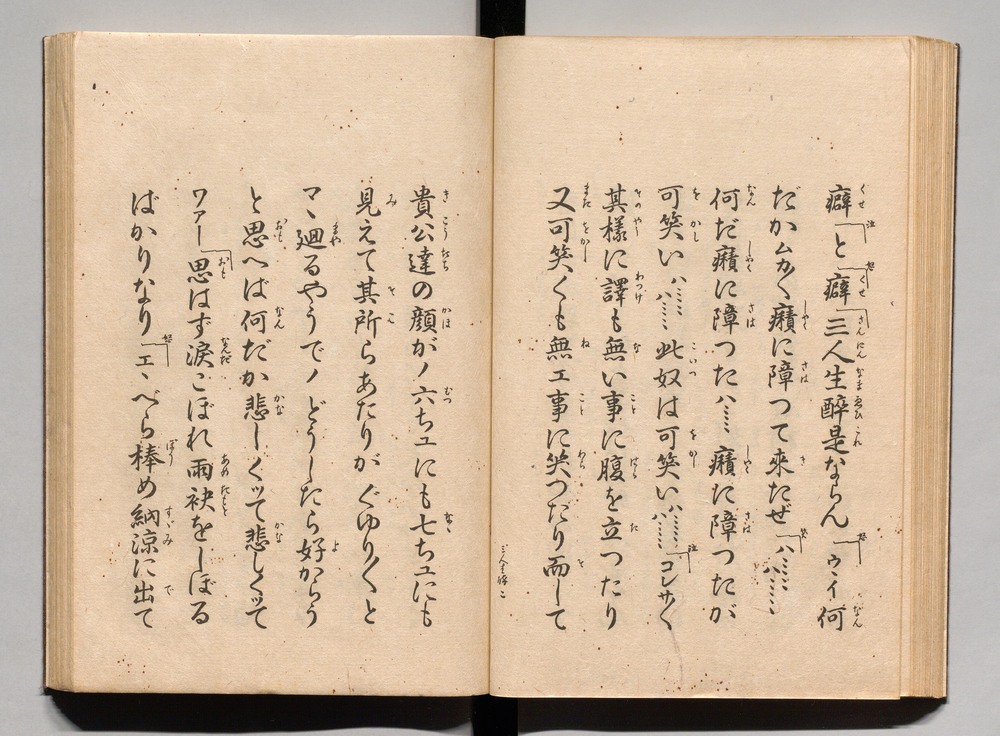 癖と癖三人生醉是ならんウイ何
だかムカ〱癪に障つて来たぜハヽヽヽハヽヽヽ
何だ癪に障つたハヽヽ癪に障つたが
可笑いハヽヽヽハヽヽヽ此奴は可笑いハヽヽヽハヽヽヽコレサ〱
其樣に譯も無い事に腹を立つたり
又可笑くも無エ事に笑つたり而して
貴公達の顔がノ六ちユにも七ちユにも
見えて其所らあたりがぐゆり〱と
マヽ廻るやうでノどうしたら好からう
と思へば何だか悲しくツて悲しくツて
ワアー思はず涙こぼれ雨袂をしぼる
ばかりなりエヽべら棒め納涼に出て